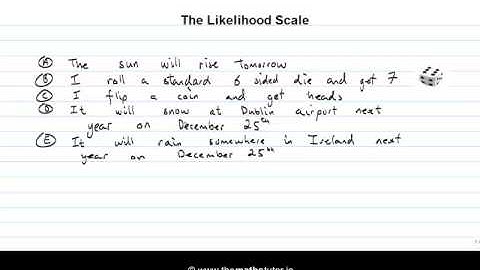 The Likelihood Scale
(A) The sun will rise tomorrow
(B) I roll a standard 6 sided die and get 7
(C) I flip a coin and get heads
(D) It will snow at Dublin airport next
year on December 25th
(E) It will rain somewhere in Ireland next
year on December 25th
© www.themathstutor.ie